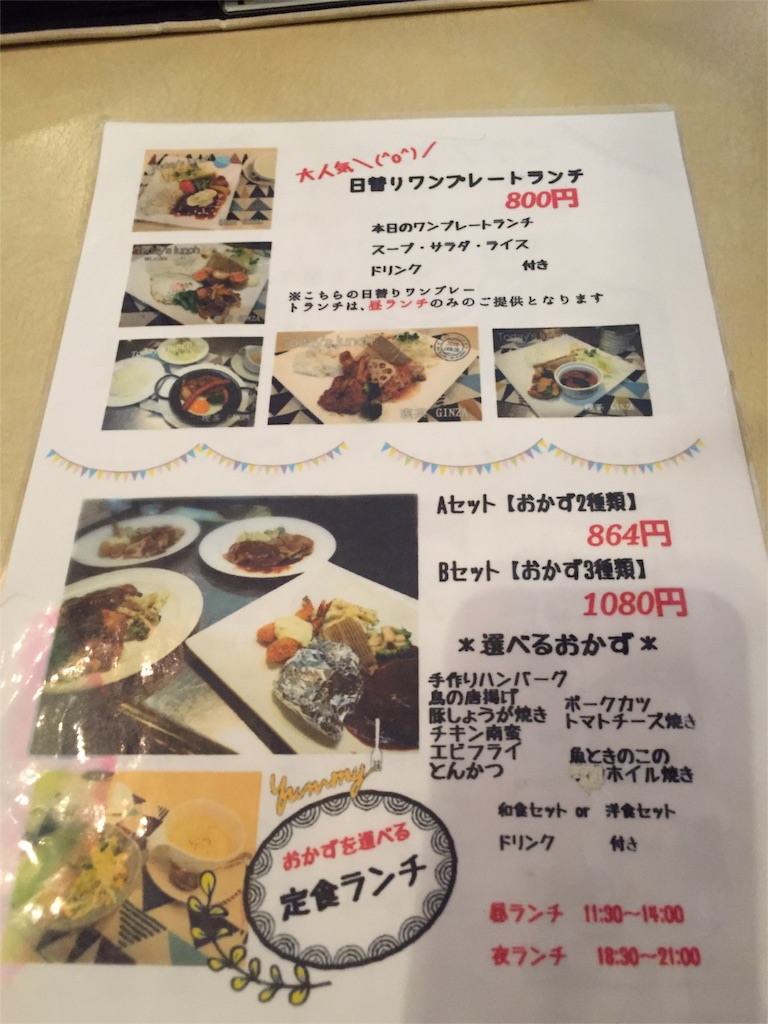 大人気＼(^o^)／
日替りワンプレートランチ
800円
本日のワンプレートランチ
スープ・サラダ・ライス
ドリンク 付き
※こちらの日替りワンプレー
トランチは、昼ランチのみのご提供となります
Today's lunch
喫茶 GINZA
Today's lunch
喫茶 GINZA
Today's lunch
喫茶 GINZA
Aセット【おかず2種類】
864円
Bセット【おかず3種類】
1080円
＊選べるおかず＊
手作りハンバーグ
鳥の唐揚げ
豚しょうが焼き
チキン南蛮
エビフライ
とんかつ
ポークカツ
トマトチーズ焼き
魚ときのこの
ホイル焼き
和食セット or 洋食セット
ドリンク 付き
Yummy
おかずを選べる
定食ランチ
昼ランチ 11:30～14:00
夜ランチ 18:30～21:00